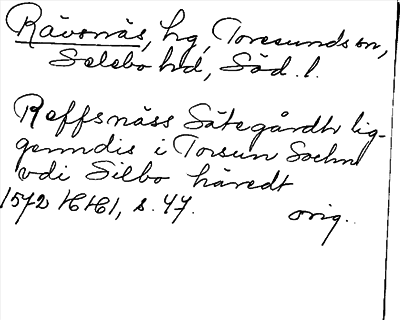 Rävsnäs, hg, Toresunds sn,
Selebo hd, Söd. l.
Reffsnäss Sätegårdh lig-
genndis i Torsun Sochn
vdi Silbo häredt
1572 HH1, s. 47. orig.